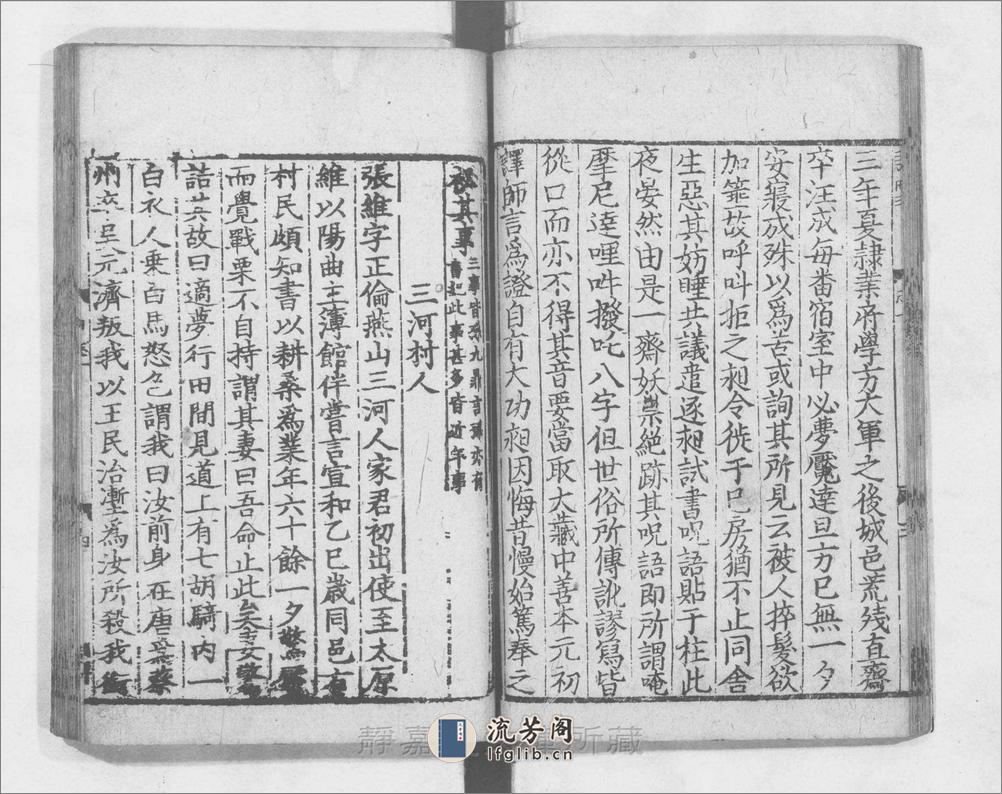 三年夏隷業府學方大軍之後城邑荒殘直齋
卒汪成每番宿室中必夢魘達旦方已無一夕
安寢成殊以爲苦或詢其所見云被人捽髮欲
加箠故呼叫拒之昶令徙于己房猶不止同舍
生惡其妨睡共議遣逐昶試書呪語貼于柱此
夜晏然由是一齋妖祟絶跡其呪語即所謂唵
摩尼達哩吽撥吒八字但世俗所傳訛謬寫皆
從口而亦不得其音要當取大藏中善本元初
譯師言爲證自有大功昶因悔昔慢始篤奉之
其事三事皆孫九鼎言孫亦有
書紀此事甚多皆近年事
三河村人
張維字正倫燕山三河人家君初出使至太原
維以陽曲主薄館伴嘗言宣和乙巳歲同邑有
村民頗知書以耕桑爲業年六十餘一夕驚魘
而覺戰栗不自持謂其妻曰吾命止此矣妻驚
詰其故曰適夢行田間見道上有七胡騎内一
白衣人乗白馬怒色謂我曰汝前身在唐爲蔡
州卒吳元濟叛我以王民治塹爲汝所殺我銜
静嘉 所藏
流芳阁
lfglib.cn